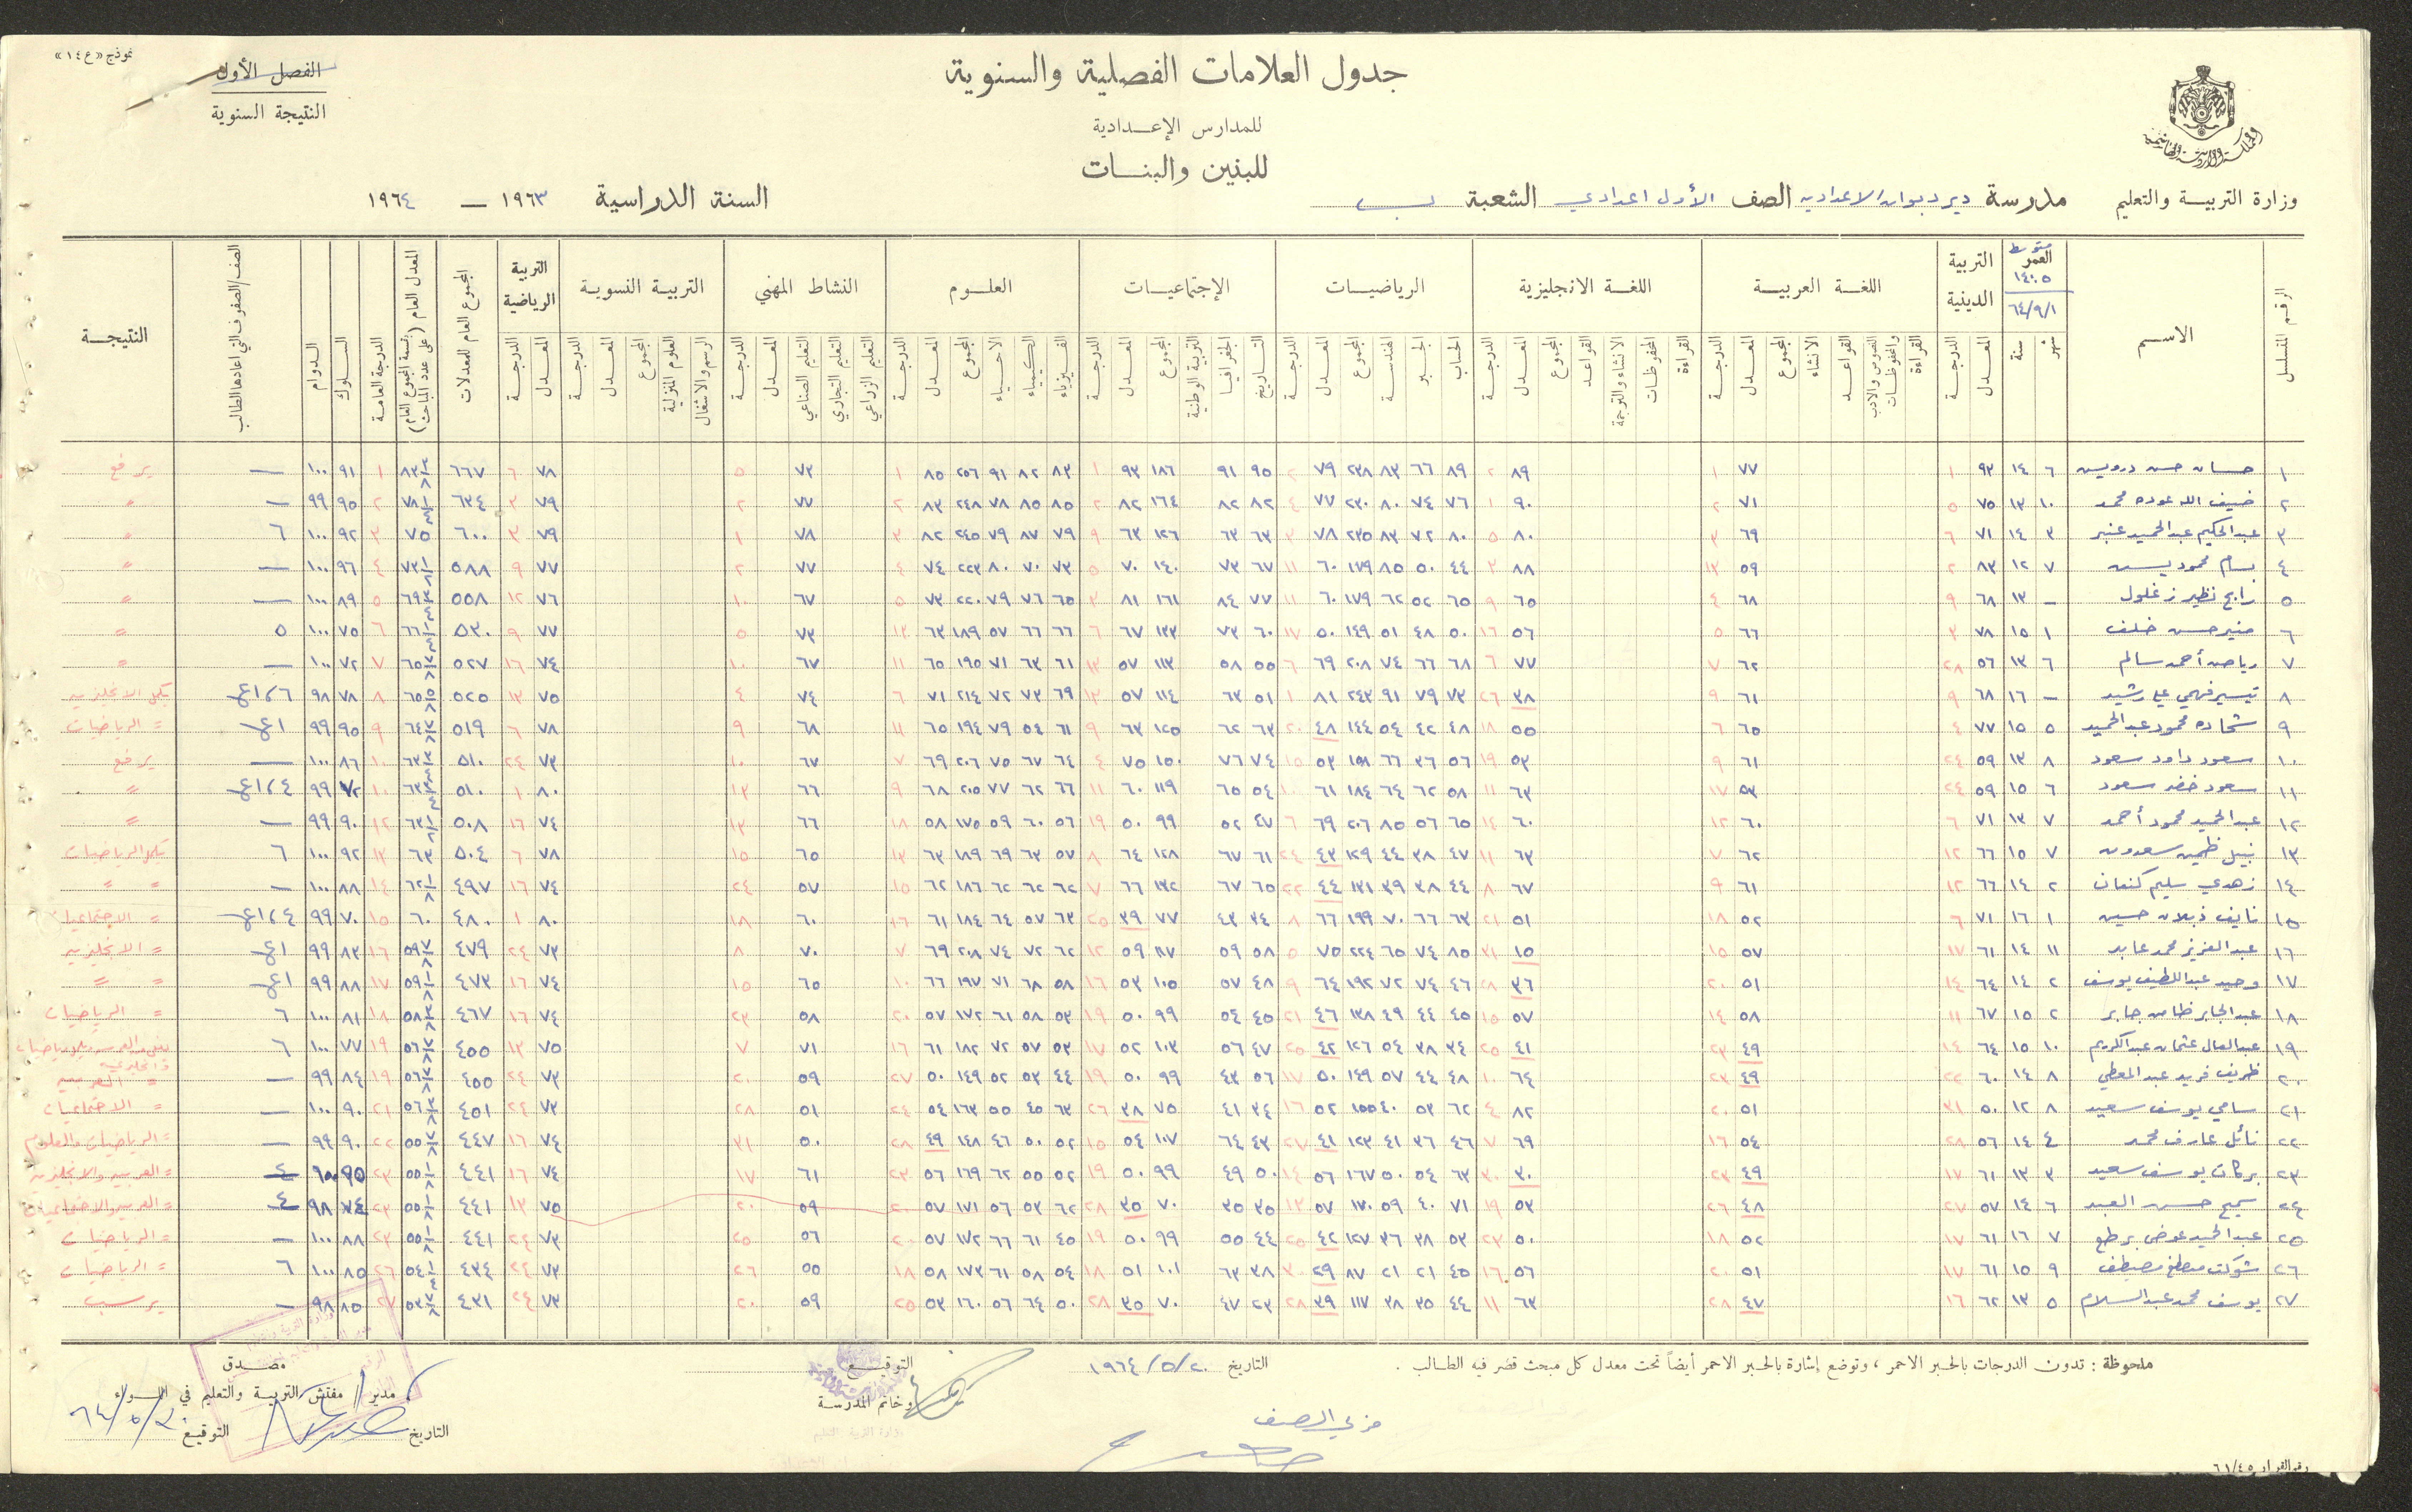 نموذج «ع ١٤»
الفصل الأول
النتيجة السنوية
جدول العلامات الفصلية والسنوية
للمدارس الإعدادية
للبنين والبنات
المملكة الأردنية الهاشمية
وزارة التربية والتعليم
مدرسة دير دبوان الاعدادية الصف الأول اعدادي الشعبة ب
السنة الدراسية ١٩٦٣ — ١٩٦٤
الرقم المتسلسل
الاسم
متوسط العمر ١٤.٥
٦٤/٩/١
شهر سنة
التربية الدينية
المعدل الدرجة
اللغة العربية
القراءة والمحفوظات النصوص والادب القواعد الانشاء المجموع المعدل الدرجة
اللغة الانجليزية
القراءة المحفوظات الانشاء والترجمة القواعد المجموع المعدل الدرجة
الرياضيات
الحساب الجبر الهندسة المجموع المعدل الدرجة
الإجتماعيات
التاريخ الجغرافيا التربية الوطنية المجموع المعدل الدرجة
العلوم
الفيزياء الكيمياء الاحياء المجموع المعدل الدرجة
النشاط المهني
التعليم الزراعي التعليم التجاري التعليم الصناعي المعدل الدرجة
التربية النسوية
الرسم والاشغال العلوم المنزلية المجموع المعدل الدرجة
التربية الرياضية
المعدل الدرجة
المجموع العام للمعدلات
المعدل العام (قسمة المجموع العام على عدد المباحث)
الدرجة العامة
السلوك
الدوام
الصف/الصفوف التي اعادها الطالب
النتيجة
١ حسان حسن درويش ٦ ١٤ ٩٣ ١ ٧٧ ١ ٨٩ ٢ ٨٩ ٦٦ ٨٣ ٢٣٨ ٧٩ ٢ ٩٥ ٩١ ١٨٦ ٩٣ ١ ٨٣ ٨٢ ٩١ ٢٥٦ ٨٥ ١ ٧٣ ٥ ٧٨ ٦ ٦٦٧ ٨٣ ٣/٨ ١ ٩١ ١٠٠ — يرفع
٢ ضيف الله عوده محمد ١٠ ١٣ ٧٥ ٥ ٧١ ٢ ٩٠ ١ ٧٦ ٧٤ ٨٠ ٢٣٠ ٧٧ ٤ ٨٢ ٨٢ ١٦٤ ٨٢ ٢ ٨٥ ٨٥ ٧٨ ٢٤٨ ٨٣ ٢ ٧٧ ٢ ٧٩ ٣ ٦٣٤ ٢ ٩٥ ٩٩ — "
٣ عبد الحكيم عبد الحميد عنبر ٣ ١٤ ٧١ ٦ ٦٩ ٣ ٨٠ ٥ ٨٠ ٧٢ ٨٣ ٢٣٥ ٧٨ ٣ ٦٣ ٦٣ ١٢٦ ٦٣ ٩ ٧٩ ٨٧ ٧٩ ٢٤٥ ٨٢ ٣ ٧٨ ١ ٧٩ ٣ ٦٠٠ ٧٥ ٣ ٩٢ ١٠٠ ٦ "
٤ بسام محمود يسن ٧ ١٢ ٨٣ ٢ ٥٩ ١٣ ٨٨ ٣ ٤٤ ٥٠ ٨٥ ١٧٩ ٦٠ ١١ ٦٧ ٧٣ ١٤٠ ٧٠ ٥ ٧٣ ٧٠ ٨٠ ٢٢٣ ٧٤ ٤ ٧٧ ٢ ٧٧ ٩ ٥٨٨ ٤ ٩٦ ١٠٠ — "
٥ رابح نظير زغلول — ١٣ ٦٨ ٩ ٦٨ ٤ ٦٥ ٩ ٦٥ ٥٢ ٦٢ ١٧٩ ٦٠ ١١ ٧٧ ٨٤ ١٦١ ٨١ ٣ ٦٥ ٧٦ ٧٩ ٢٢٠ ٧٣ ٥ ٦٧ ١٠ ٧٦ ١٢ ٥٥٨ ٥ ٨٩ ١٠٠ — "
٦ منير حسن خلف ١ ١٥ ٧٨ ٣ ٦٦ ٥ ٥٦ ١٦ ٥٠ ٤٨ ٥١ ١٤٩ ٥٠ ١٧ ٦٠ ٧٣ ١٣٣ ٦٧ ٦ ٦٦ ٦٦ ٥٧ ١٨٩ ٦٣ ١٣ ٧٣ ٥ ٧٧ ٩ ٥٣٠ ٦ ٧٥ ١٠٠ ٥ "
٧ رياض أحمد سالم ٦ ١٣ ٥٦ ٢٨ ٦٢ ٧ ٧٧ ٦ ٦٨ ٦٦ ٧٤ ٢٠٨ ٦٩ ٦ ٥٥ ٥٨ ١١٣ ٥٧ ١٣ ٦١ ٦٣ ٧١ ١٩٥ ٦٥ ١١ ٦٧ ١٠ ٧٤ ١٦ ٥٢٧ ٧ ٧٢ ١٠٠ — "
٨ تيسير فهمي علي رشيد — ١٦ ٦٨ ٩ ٦١ ٩ ٣٨ ٢٦ ٧٣ ٧٩ ٩١ ٢٤٣ ٨١ ١ ٥١ ٦٣ ١١٤ ٥٧ ١٣ ٦٩ ٧٣ ٧٢ ٢١٤ ٧١ ٦ ٧٤ ٤ ٧٥ ١٣ ٥٢٥ ٨ ٧٨ ٩٨ ٦، ١ع يكمل الانجليزية
٩ شحاده محمود عبد الحميد ٥ ١٥ ٧٧ ٤ ٦٥ ٦ ٥٥ ١٨ ٤٨ ٤٢ ٥٤ ١٤٤ ٤٨ ٢٠ ٦٣ ٦٢ ١٢٥ ٦٣ ٩ ٦١ ٥٤ ٧٩ ١٩٤ ٦٥ ١١ ٦٨ ٩ ٧٨ ٦ ٥١٩ ٩ ٩٥ ٩٩ ١ع = الرياضيات
١٠ سعود داود سعود ٨ ١٣ ٥٩ ٢٤ ٦١ ٩ ٥٣ ١٩ ٥٦ ٣٦ ٦٦ ١٥٨ ٥٣ ١٥ ٧٤ ٧٦ ١٥٠ ٧٥ ٤ ٦٤ ٦٧ ٧٥ ٢٠٦ ٦٩ ٧ ٦٧ ١٠ ٧٣ ٢٤ ٥١٠ ١٠ ٨٦ ١٠٠ — يرفع
١١ سعود خضر سعود ٦ ١٥ ٥٩ ٢٤ ٥٣ ١٧ ٦٣ ١١ ٥٨ ٦٢ ٦٤ ١٨٤ ٦١ ١٠ ٥٤ ٦٥ ١١٩ ٦٠ ١١ ٦٦ ٦٢ ٧٧ ٢٠٥ ٦٨ ٩ ٦٦ ١٣ ٨٠ ١ ٥١٠ ١٠ ٧٢ ٩٩ ٤، ١ع "
١٢ عبد الحميد محمود أحمد ٧ ١٣ ٧١ ٦ ٦٠ ١٢ ٦٠ ١٤ ٦٥ ٥٦ ٨٥ ٢٠٦ ٦٩ ٦ ٤٧ ٥٢ ٩٩ ٥٠ ١٩ ٥٦ ٦٠ ٥٩ ١٧٥ ٥٨ ١٨ ٦٦ ١٣ ٧٤ ١٦ ٥٠٨ ١٢ ٩٠ ٩٩ — "
١٣ نبيل طحين سعدون ٧ ١٥ ٦٦ ١٢ ٦٢ ٧ ٦٣ ١١ ٤٧ ٣٨ ٤٤ ١٢٩ ٤٣ ٢٤ ٦١ ٦٧ ١٢٨ ٦٤ ٨ ٥٧ ٦٣ ٦٩ ١٨٩ ٦٣ ١٣ ٦٥ ١٥ ٧٨ ٦ ٥٠٤ ٦٣ ١٣ ٩٢ ١٠٠ ٦ يكمل الرياضيات
١٤ زهدي سليم كنعان ٢ ١٤ ٦٦ ١٢ ٦١ ٩ ٦٧ ٨ ٤٤ ٣٨ ٣٩ ١٣١ ٤٤ ٢٢ ٦٥ ٦٧ ١٣٢ ٦٦ ٧ ٦٢ ٦٢ ٦٢ ١٨٦ ٦٢ ١٥ ٥٧ ٢٤ ٧٤ ١٦ ٤٩٧ ١٤ ٨٨ ١٠٠ — = =
١٥ نايف ذبلان حسين ١ ١٦ ٧١ ٦ ٥٢ ١٨ ٥١ ٢١ ٦٣ ٦٦ ٧٠ ١٩٩ ٦٦ ٨ ٣٤ ٤٣ ٧٧ ٣٩ ٢٥ ٦٣ ٥٧ ٦٤ ١٨٤ ٦١ ١٦ ٦٠ ١٨ ٨٠ ١ ٤٨٠ ٦٠ ١٥ ٧٠ ٩٩ ٤، ١ع = الاجتماعيات
١٦ عبد العزيز محمد عابد ١١ ١٤ ٦١ ١٧ ٥٧ ١٥ ١٥ ٣١ ٨٥ ٧٤ ٦٥ ٢٢٤ ٧٥ ٥ ٥٨ ٥٩ ١١٧ ٥٩ ١٢ ٦٢ ٧٢ ٧٤ ٢٠٨ ٦٩ ٧ ٧٠ ٨ ٧٣ ٢٤ ٤٧٩ ١٦ ٨٣ ٩٩ ١ع = الانجليزية
١٧ وحيد عبد اللطيف يوسف ٢ ١٤ ٦٤ ١٤ ٥١ ٢٠ ٣٦ ٢٨ ٤٦ ٧٤ ٧٢ ١٩٢ ٦٤ ٩ ٤٨ ٥٧ ١٠٥ ٥٣ ١٦ ٥٨ ٦٨ ٧١ ١٩٧ ٦٦ ١٠ ٦٥ ١٥ ٧٤ ١٦ ٤٧٣ ١٧ ٨٨ ٩٩ ١ع = =
١٨ عبد الجابر ظاهر جابر ٢ ١٥ ٦٧ ١١ ٥٨ ١٤ ٥٧ ١٥ ٤٥ ٤٤ ٤٩ ١٣٨ ٤٦ ٢١ ٤٥ ٥٤ ٩٩ ٥٠ ١٩ ٥٣ ٥٨ ٦١ ١٧٢ ٥٧ ٢٠ ٥٨ ٢٣ ٧٤ ١٦ ٤٦٧ ١٨ ٨١ ١٠٠ ٦ = الرياضيات
١٩ عبد العال عثمان عبد الكريم ١٠ ١٥ ٦٤ ١٤ ٤٩ ٢٣ ٤١ ٢٥ ٣٤ ٣٨ ٥٤ ١٢٦ ٤٢ ٢٥ ٤٧ ٥٦ ١٠٣ ٥٢ ١٧ ٥٣ ٥٧ ٧٢ ١٨٢ ٦١ ١٦ ٧١ ٧ ٧٥ ١٣ ٤٥٥ ١٩ ٧٧ ١٠٠ ٦
٢٠ ظريف فريد عبد المعطي ٨ ١٤ ٦٠ ٢٢ ٤٩ ٢٣ ٦٤ ١٠ ٤٨ ٤٤ ٥٧ ١٤٩ ٥٠ ١٧ ٥٦ ٤٣ ٩٩ ٥٠ ١٩ ٤٤ ٥٣ ٥٢ ١٤٩ ٥٠ ٢٧ ٥٩ ٢٠ ٧٣ ٢٤ ٤٥٥ ١٩ ٨٤ ٩٩ — = العربية
٢١ سامي يوسف سعيد ٨ ١٢ ٥٠ ٣١ ٥١ ٢٠ ٨٢ ٤ ٦٢ ٥٣ ٤٠ ١٥٥ ٥٢ ١٦ ٣٤ ٤١ ٧٥ ٣٨ ٢٦ ٦٣ ٤٥ ٥٥ ١٦٣ ٥٤ ٢٤ ٥١ ٢٨ ٧٣ ٢٤ ٤٥١ ٢١ ٩٠ ١٠٠ — = الاجتماعيات
٢٢ نائل عارف محمد ٤ ١٤ ٥٦ ٢٨ ٥٤ ١٦ ٦٩ ٧ ٤٦ ٣٦ ٤١ ١٢٣ ٤١ ٢٧ ٤٣ ٦٤ ١٠٧ ٥٤ ١٥ ٥٢ ٥٠ ٤٦ ١٤٨ ٤٩ ٢٨ ٥٠ ٣١ ٧٤ ١٦ ٤٤٧ ٢٢ ٩٠ ٩٩ — = الرياضيات والعلوم
٢٣ بركات يوسف سعيد ٣ ١٣ ٦١ ١٧ ٤٩ ٢٣ ٣٠ ٣٠ ٦٣ ٥٤ ٥٠ ١٦٧ ٥٦ ١٤ ٥٠ ٤٩ ٩٩ ٥٠ ١٩ ٥٢ ٥٥ ٦٢ ١٦٩ ٥٦ ٢٣ ٦١ ١٧ ٧٤ ١٦ ٤٤١ ٢٣ ٩٥ = العربية والانجليزية
٢٤ سميح حسن العبد ٦ ١٤ ٥٧ ٢٧ ٤٨ ٢٦ ٥٣ ١٩ ٧١ ٤٠ ٥٩ ١٧٠ ٥٧ ١٣ ٣٥ ٣٥ ٧٠ ٣٥ ٢٨ ٦٢ ٥٣ ٥٦ ١٧١ ٥٧ ٢٠ ٥٩ ٢٠ ٧٥ ١٣ ٤٤١ ٢٣ ٧٤ ٩٨ = العربية والاجتماعيات
٢٥ عبد الحميد عوض برطع ٧ ١٦ ٦١ ١٧ ٥٢ ١٨ ٥٠ ٢٣ ٥٣ ٣٨ ٣٦ ١٢٧ ٤٢ ٢٥ ٤٤ ٥٥ ٩٩ ٥٠ ١٩ ٤٥ ٦١ ٦٦ ١٧٢ ٥٧ ٢٠ ٥٦ ٢٥ ٧٣ ٢٤ ٤٤١ ٢٣ ٨٨ ١٠٠ — = الرياضيات
٢٦ شوكت مصطفى مصيطف ٩ ١٥ ٦١ ١٧ ٥١ ٢٠ ٥٦ ١٦ ٤٥ ٢١ ٢١ ٨٧ ٢٩ ٣٠ ٣٨ ٦٣ ١٠١ ٥١ ١٨ ٥٤ ٥٨ ٦١ ١٧٣ ٥٨ ١٨ ٥٥ ٢٦ ٧٣ ٢٤ ٤٣٤ ٢٦ ٨٥ ١٠٠ ٦ = الرياضيات
٢٧ يوسف محمد عبد السلام ٥ ١٣ ٦٢ ١٦ ٤٧ ٢٨ ٦٣ ١١ ٤٤ ٣٥ ٣٨ ١١٧ ٣٩ ٢٨ ٢٣ ٤٧ ٧٠ ٣٥ ٢٨ ٥٠ ٦٤ ٥٦ ١٦٠ ٥٣ ٢٥ ٥٩ ٢٠ ٧٣ ٢٤ ٤٣١ ٢٧ ٨٥ ٩٨ — يرسب
ملحوظة : تدون الدرجات بالحبر الاحمر ، وتوضع إشارة بالحبر الاحمر أيضاً تحت معدل كل مبحث قصر فيه الطالب .
التاريخ ١٩٦٤/٥/٢٠
التوقيع
وخاتم المدرسة
مربي الصف
مصدق
مدير / مفتش التربية والتعليم في اللواء
التاريخ
التوقيع
رقم القرار ٦١/٤٥